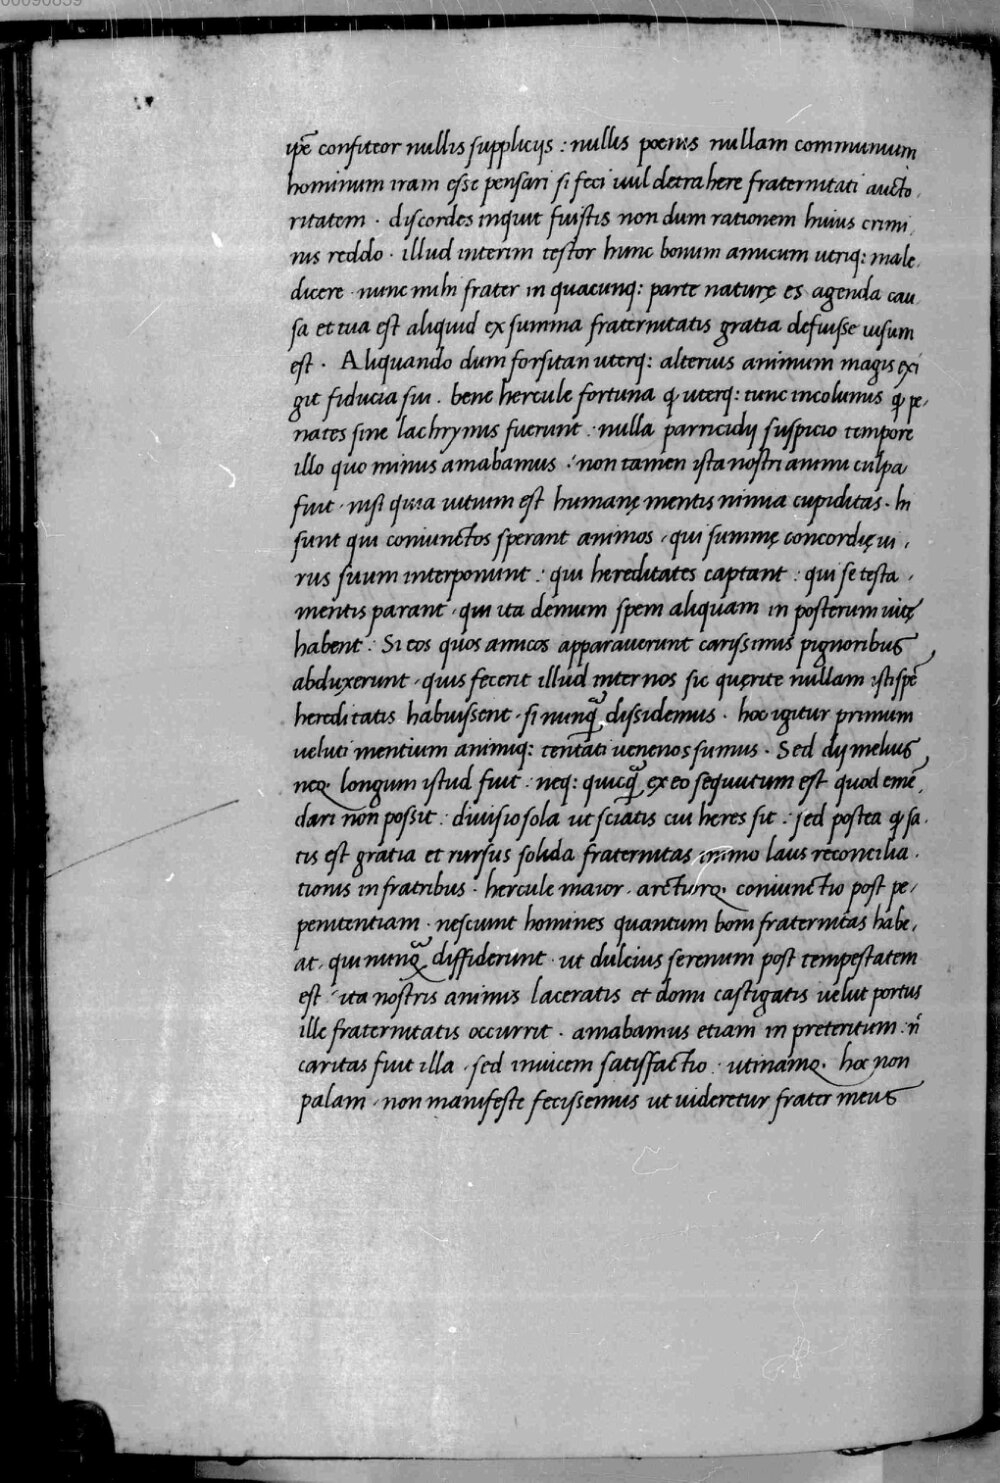 00090859
ip̄e confiteor nullis supplicijs : nullis poenis nullam communium
hominum iram esse pensari si feci uul detrahere fraternitati aucto,
ritatem . discordes inquit fuistis non dum rationem huius crimi,
nis reddo . illud interim testor hunc bonum amicum utriq: male,
dicere . nunc mihi frater in quacunq: parte naturę es agenda cau
sa et tua est aliquid ex summa fraternitatis gratia defuisse uisum
est . Aliquando dum forsitan uterq: alterius animum magis exi
git fiducia sui . bene hercule fortuna ꝙ uterq: tunc incolumis ꝙ pe,
nates sine lachrymis fuerunt . nulla parricidij suspicio tempore
illo quo minus amabamus . non tamen ista nostri animi culpa
fuit . nisi quia uitium est humanę mentis nimia cupiditas . hi
sunt qui coniunctos sperant animos , qui summę concordię ui ,
rus suum interponunt : qui hereditates captant : qui se testa ,
mentis parant , qui ita demum spem aliquam in posterum uitę
habent . Si eos quos amicos apparauerunt carissimis pignoribus
abduxerunt , quis fecerit illud inter nos sic quęrite nullam isti spē
hereditatis habuissent , si nunq̃ dissidemus . hoc igitur primum
ueluti mentium animiq: tentati uenenos sumus . Sed dij melius
neq. longum istud fuit : neq: quicq̃ ex eo sequutum est quod emē,
dari non possit . diuisio sola ut sciatis cui heres sit . sed postea ꝙ sa.
tis est gratia et rursus solida fraternitas immo laus reconcilia .
tionis in fratribus . hercule maior . arctiorq. coniunctio post pe,
penitentiam . nesciunt homines quantum boni fraternitas habe,
at . qui nunq̃ diffiderunt . ut dulcius serenum post tempestatem
est , ita nostris animis laceratis et domi castigatis uelut portus
ille fraternitatis occurrit . amabamus etiam in preteritum . n̄
caritas fuit illa , sed inuicem satisfactio . utinamq. hoc non
palam . non manifeste fecissemus ut uideretur frater meus